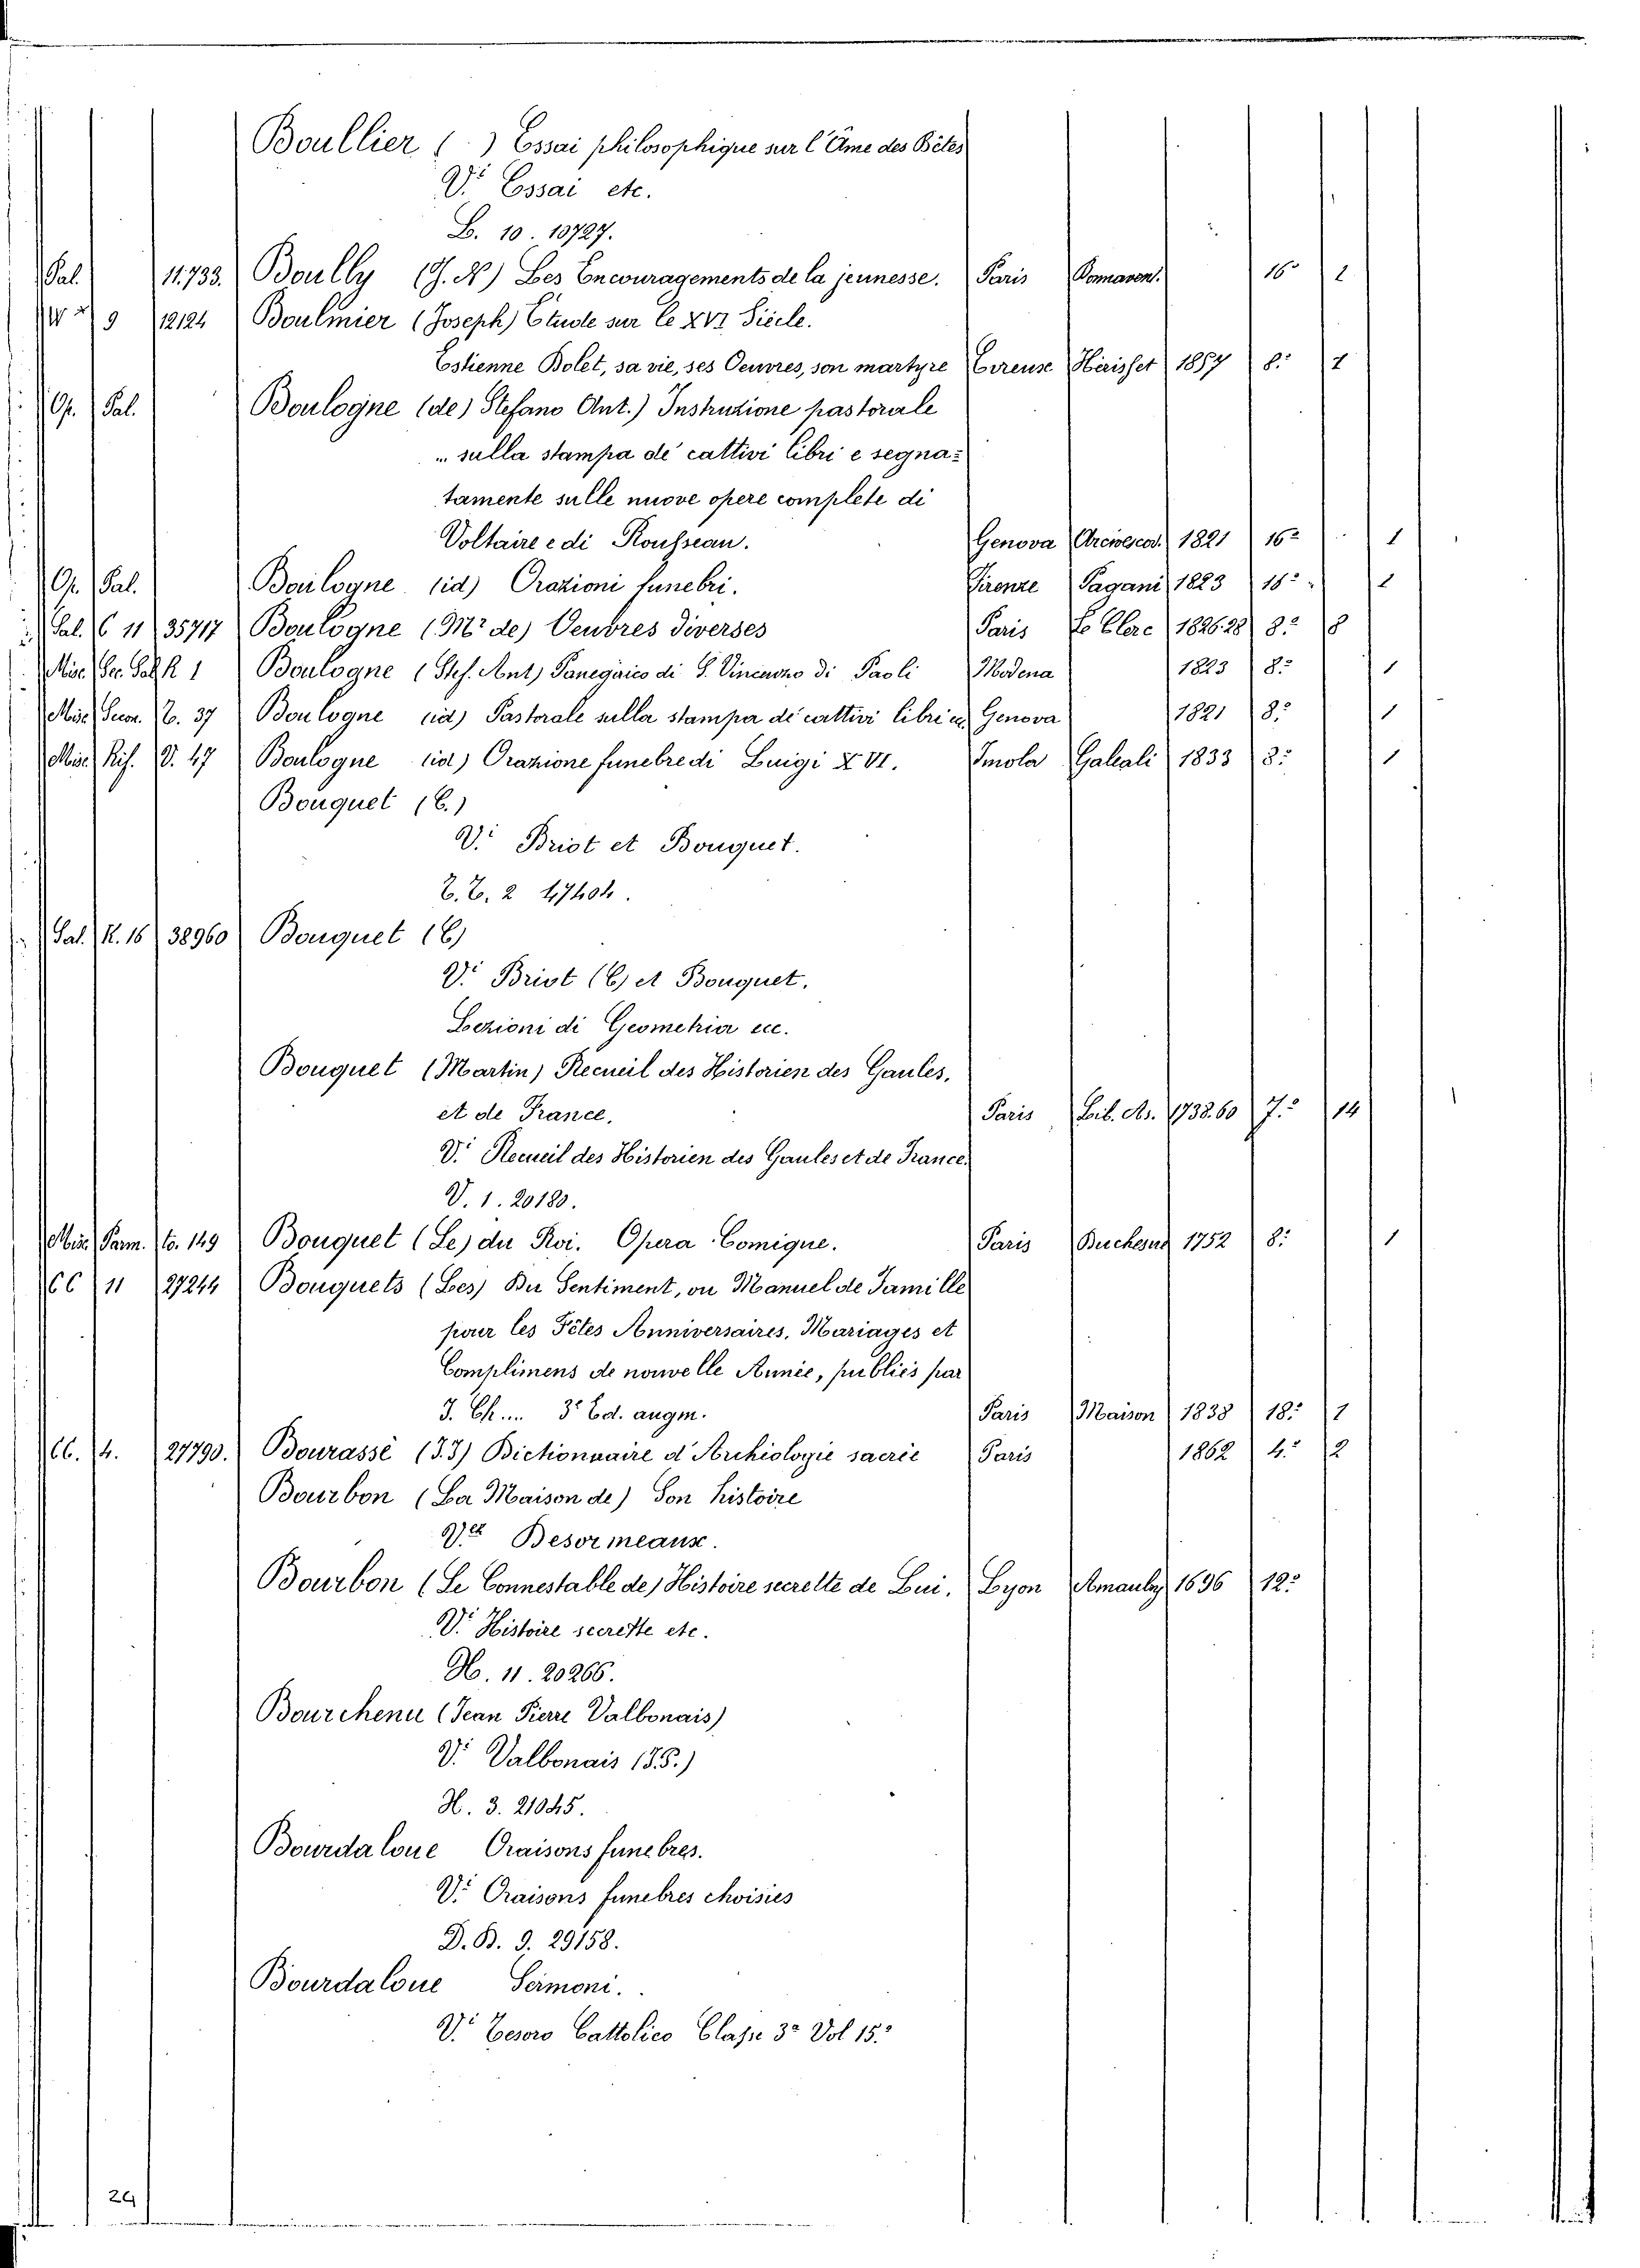 Boullier ( ) Essai philosophique sur l'Ame des Bêtes
V. Essai etc.
L. 10. 10727.
Sal. 11.733. Boully (J. N) Les Encouragements de la jeunesse. Paris 16° 1
9 12124 Boulmier (Joseph) Etude sur le XVI Siécle.
Estienne Dolet, sa vie, ses Oeuvres, son martyre 1857 8° 1
Op. Sal. Boulogne (de) Stefano Ant.) Instruzione pastorale
sulla stampa de' cattivi libri e segna=
tamente sulle nuove opere complete di
Voltaire e di Rousseau. Genova Arcivescov. 1821 16° 1
Op. Sal. Boulogne (id) Orazioni funebri. Firenze Pagani 1823 18° 1
Sal. C 11 35717 Boulogne (Mr de) Oeuvres diverses Paris Le Clerc 1826.28 8° 8
Misc. Boulogne (Stef. Ant) Panegirico di S. Vincenzo di Paoli Modena 1823 8° 1
Misc. T. 37 Boulogne (id) Pastorale sulla stampa de' cattivi libri ec Genova 1821 8° 1
Misc. Rif. V. 47 Boulogne (id) Orazione funebre di Luigi XVI. Imola Galeati 1833 8° 1
Bouquet (C.)
V. Briot et Bouquet.
Z. Z. 2 47404.
Sal. R. 16 38960 Bouquet (C)
V. Briot (C) et Bouquet.
Lezioni di Geometria ecc.
Bouquet (Martin) Recueil des Historien des Gaules,
et de France. Paris Lib. As. 1738.60 7° 14
V. Recueil des Historien des Gaules et de France.
V. 1. 20180.
Misc. Parm. to. 149 Bouquet (Le) du Roi. Opera Comique. Paris 1752 8° 1
CC 11 27244 Bouquets (Les) Du Sentiment, ou Manuel de Famille
pour les Fêtes Anniversaires, Mariages et
Complimens de nouvelle Année, publiés par
J. Ch.... 3e Ed. augm. Paris Maison 1838 18° 1
CC. 4. 27790. Bourassé (J.J) Dictionnaire d'Archiologie sacrée Paris 1862 4° 2
Bourbon (La Maison de) Son histoire
V. Desormeaux.
Bourbon (Le Connestable de) Histoire secrette de Lui. Lyon Amaulry 1696 12°
V. Histoire secrette etc.
H. 11. 20266.
Bourchenu (Jean Pierre Valbonais)
V. Valbonais
H. 3. 21045.
Bourdaloue Oraisons funebres.
V. Oraisons funebres choisies
D. B. 9. 29158.
Bourdaloue Sermoni.
V. Tesoro Cattolico Classe 3a Vol 15°
29